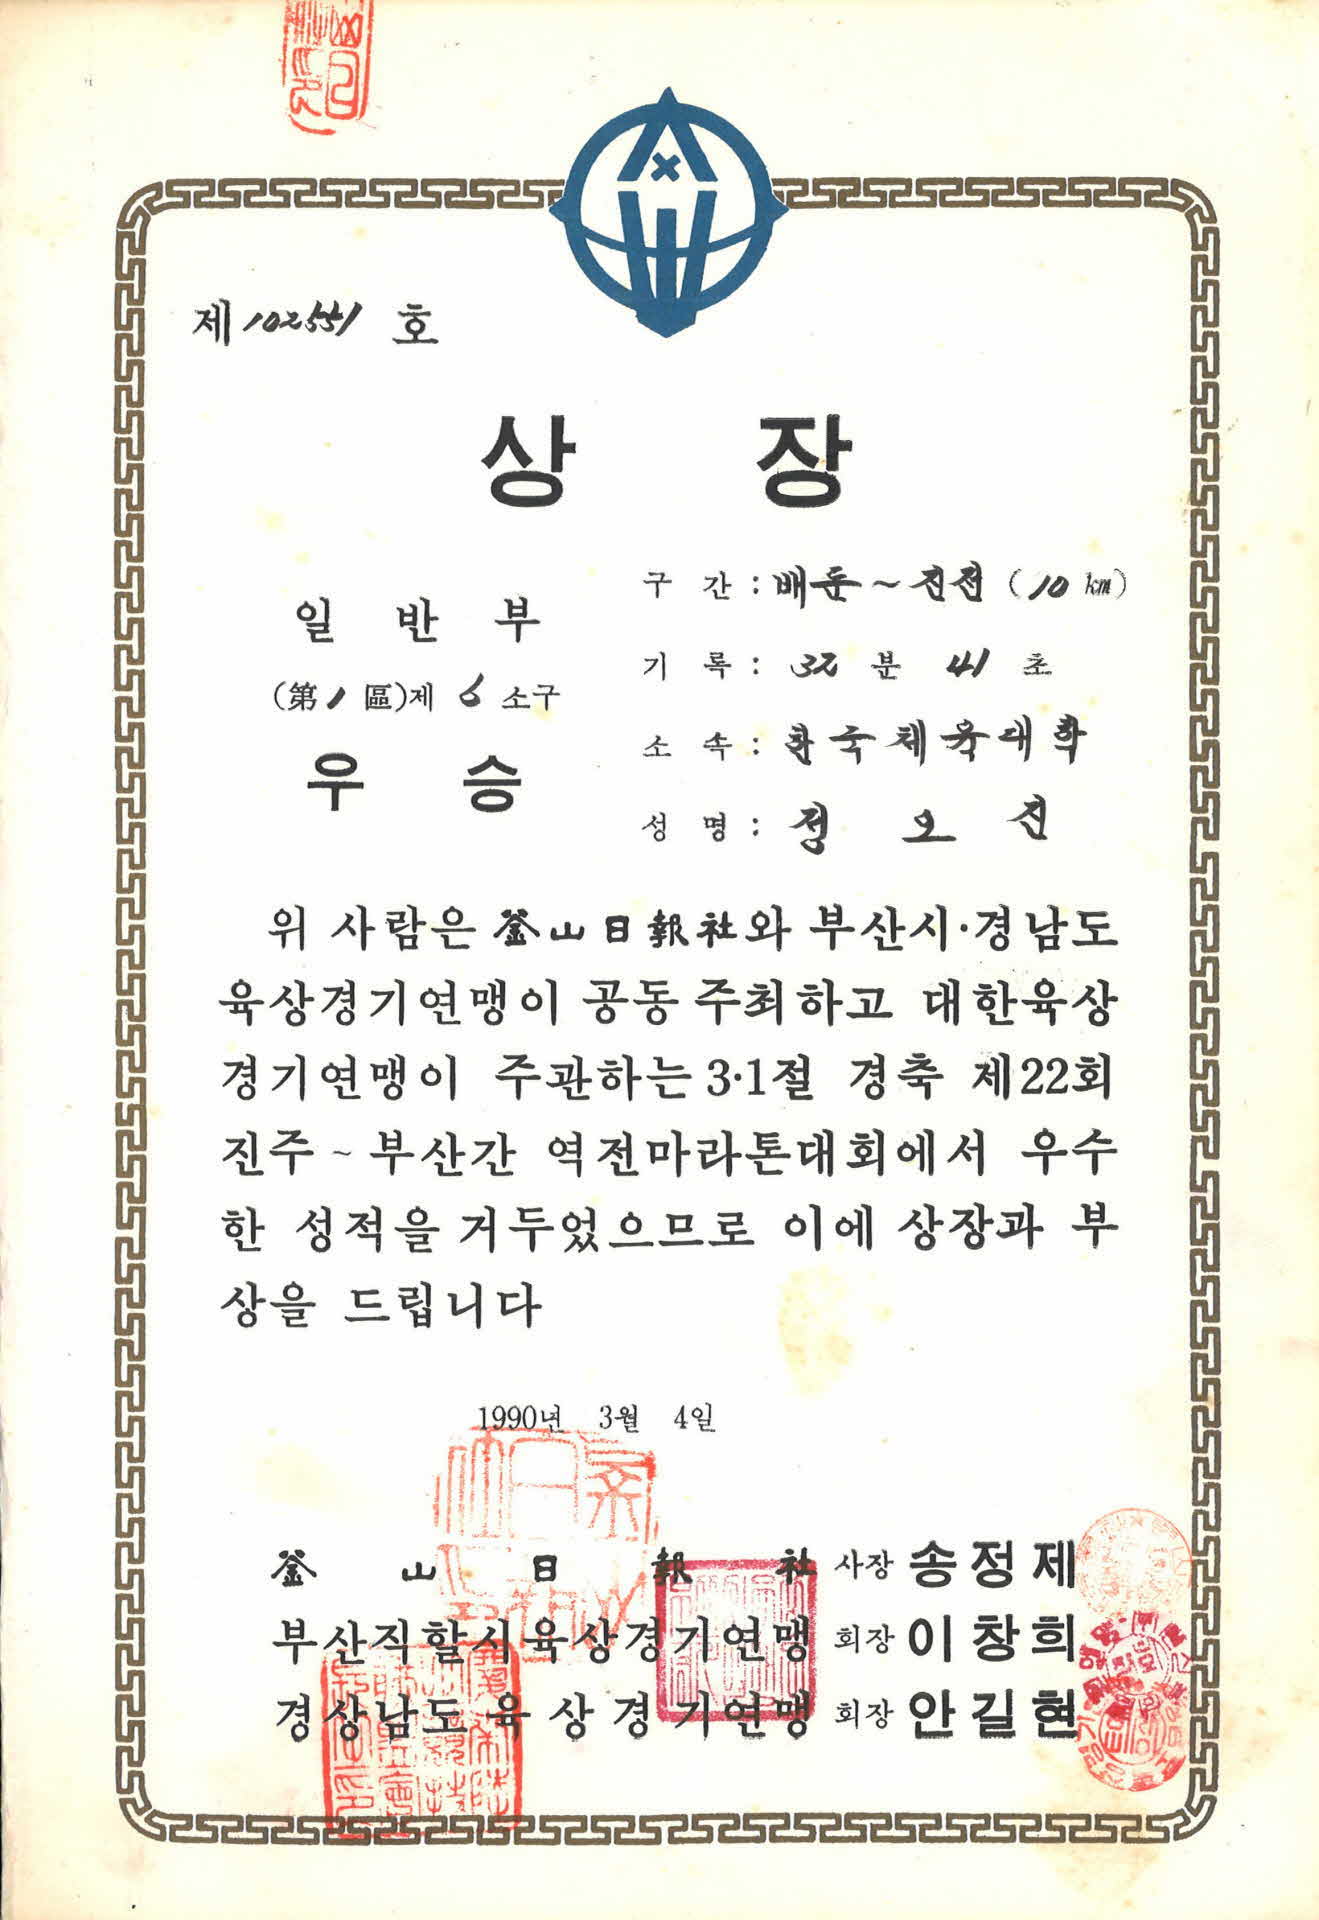 제 102551 호
상 장
일 반 부
(第1區)제 6 소구
우 승
구 간 : 배둔~진전 (10 km)
기 록 : 32 분 41 초
소 속 : 한국체육대학
성 명 : 정 오 진
위 사람은 釜山日報社와 부산시·경남도
육상경기연맹이 공동 주최하고 대한육상
경기연맹이 주관하는 3·1절 경축 제22회
진주 ~ 부산간 역전마라톤대회에서 우수
한 성적을 거두었으므로 이에 상장과 부
상을 드립니다
1990년 3월 4일
釜 山 日 報 社 사장 송정제
부산직할시육상경기연맹 회장 이창희
경상남도육상경기연맹 회장 안길현